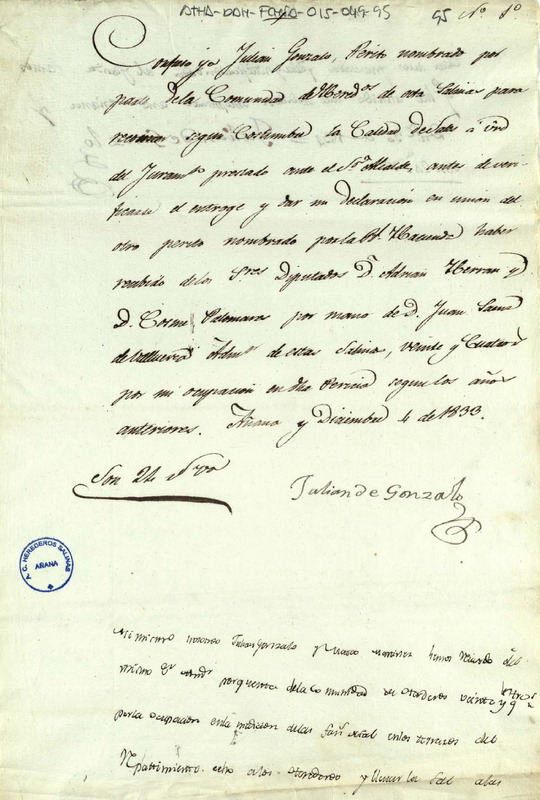 ATHA-DAH-FCHSA-015-049-95
95 Nº 8º
Confieso yo Julian Gonzalo, Perito nombrado por
parte de la Comunidad de Hered.os de estas Salinas para
reconocer segun Costumbre la Calidad de Sales á vrd
del Juram.to prestado ante el S.or Alcalde, antes de veri-
ficarse el entroge y dar mi Declaracion en union del
otro perito nombrado por la Rl. Hacienda haber
recibido de los S.res Diputados D. Adrian Herran y
D. Cosme Palomares por mano de D. Juan Sanz
de Villuercia Adm.or de estas Salinas, veinte y Cuatro
por mi ocupacion en dha Pericia segun los años
anteriores. Añana y Diciembre 4 de 1833.
Son 24 rs von
Julian de Gonzalo
A. C. HEREDEROS SALINAS
AÑANA
Asimismo nosotros Julian Gonzalo y Martinez hemos recivido del
mismo Sr por quenta de la comunidad de eredoros veinte y q
por la ocupacion en la medicion de las fan.s sal en los terreros del
Repartimiento echo a los eredoros y llevar la sal a las